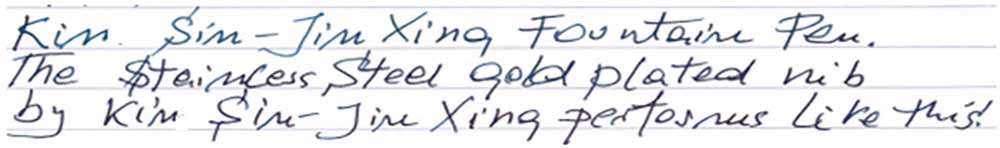 Kin Sin-Jin Xing Fountain Pen.
The Stainless Steel gold plated nib
by Kin Sin-Jin Xing performs like this!